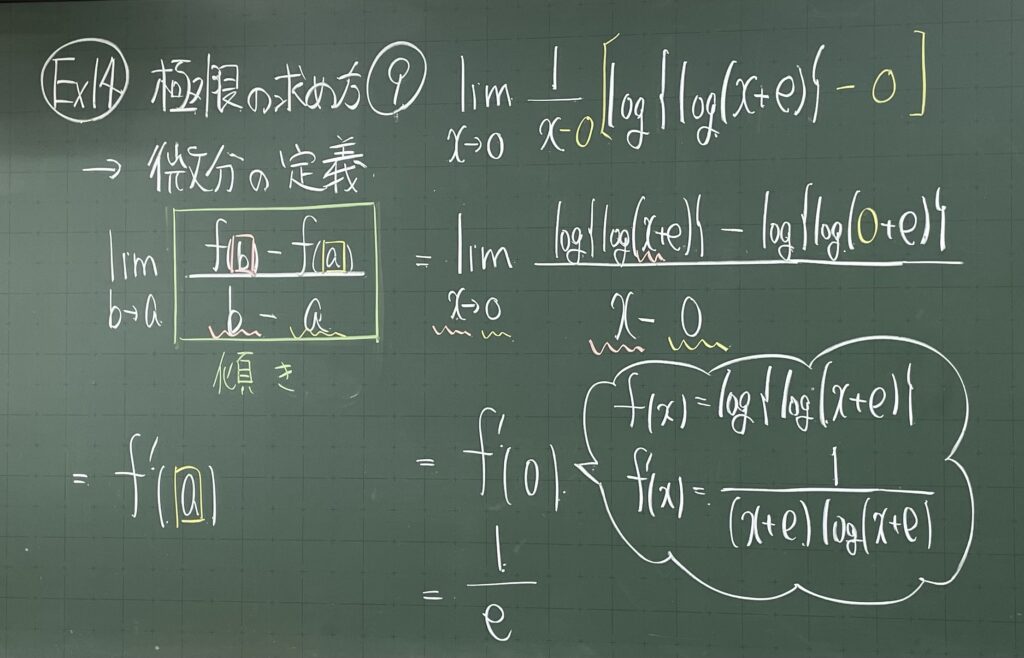 Ex14 極限の求め方⑨
→ 微分の定義
lim b→a f(b) - f(a) / b - a
傾き
= f'(a)
lim x→0 1/x-0 [log{log(x+e)} - 0]
= lim x→0 log{log(x+e)} - log{log(0+e)} / x - 0
= f'(0)
f(x) = log{log(x+e)}
f'(x) = 1/(x+e)log(x+e)
= 1/e